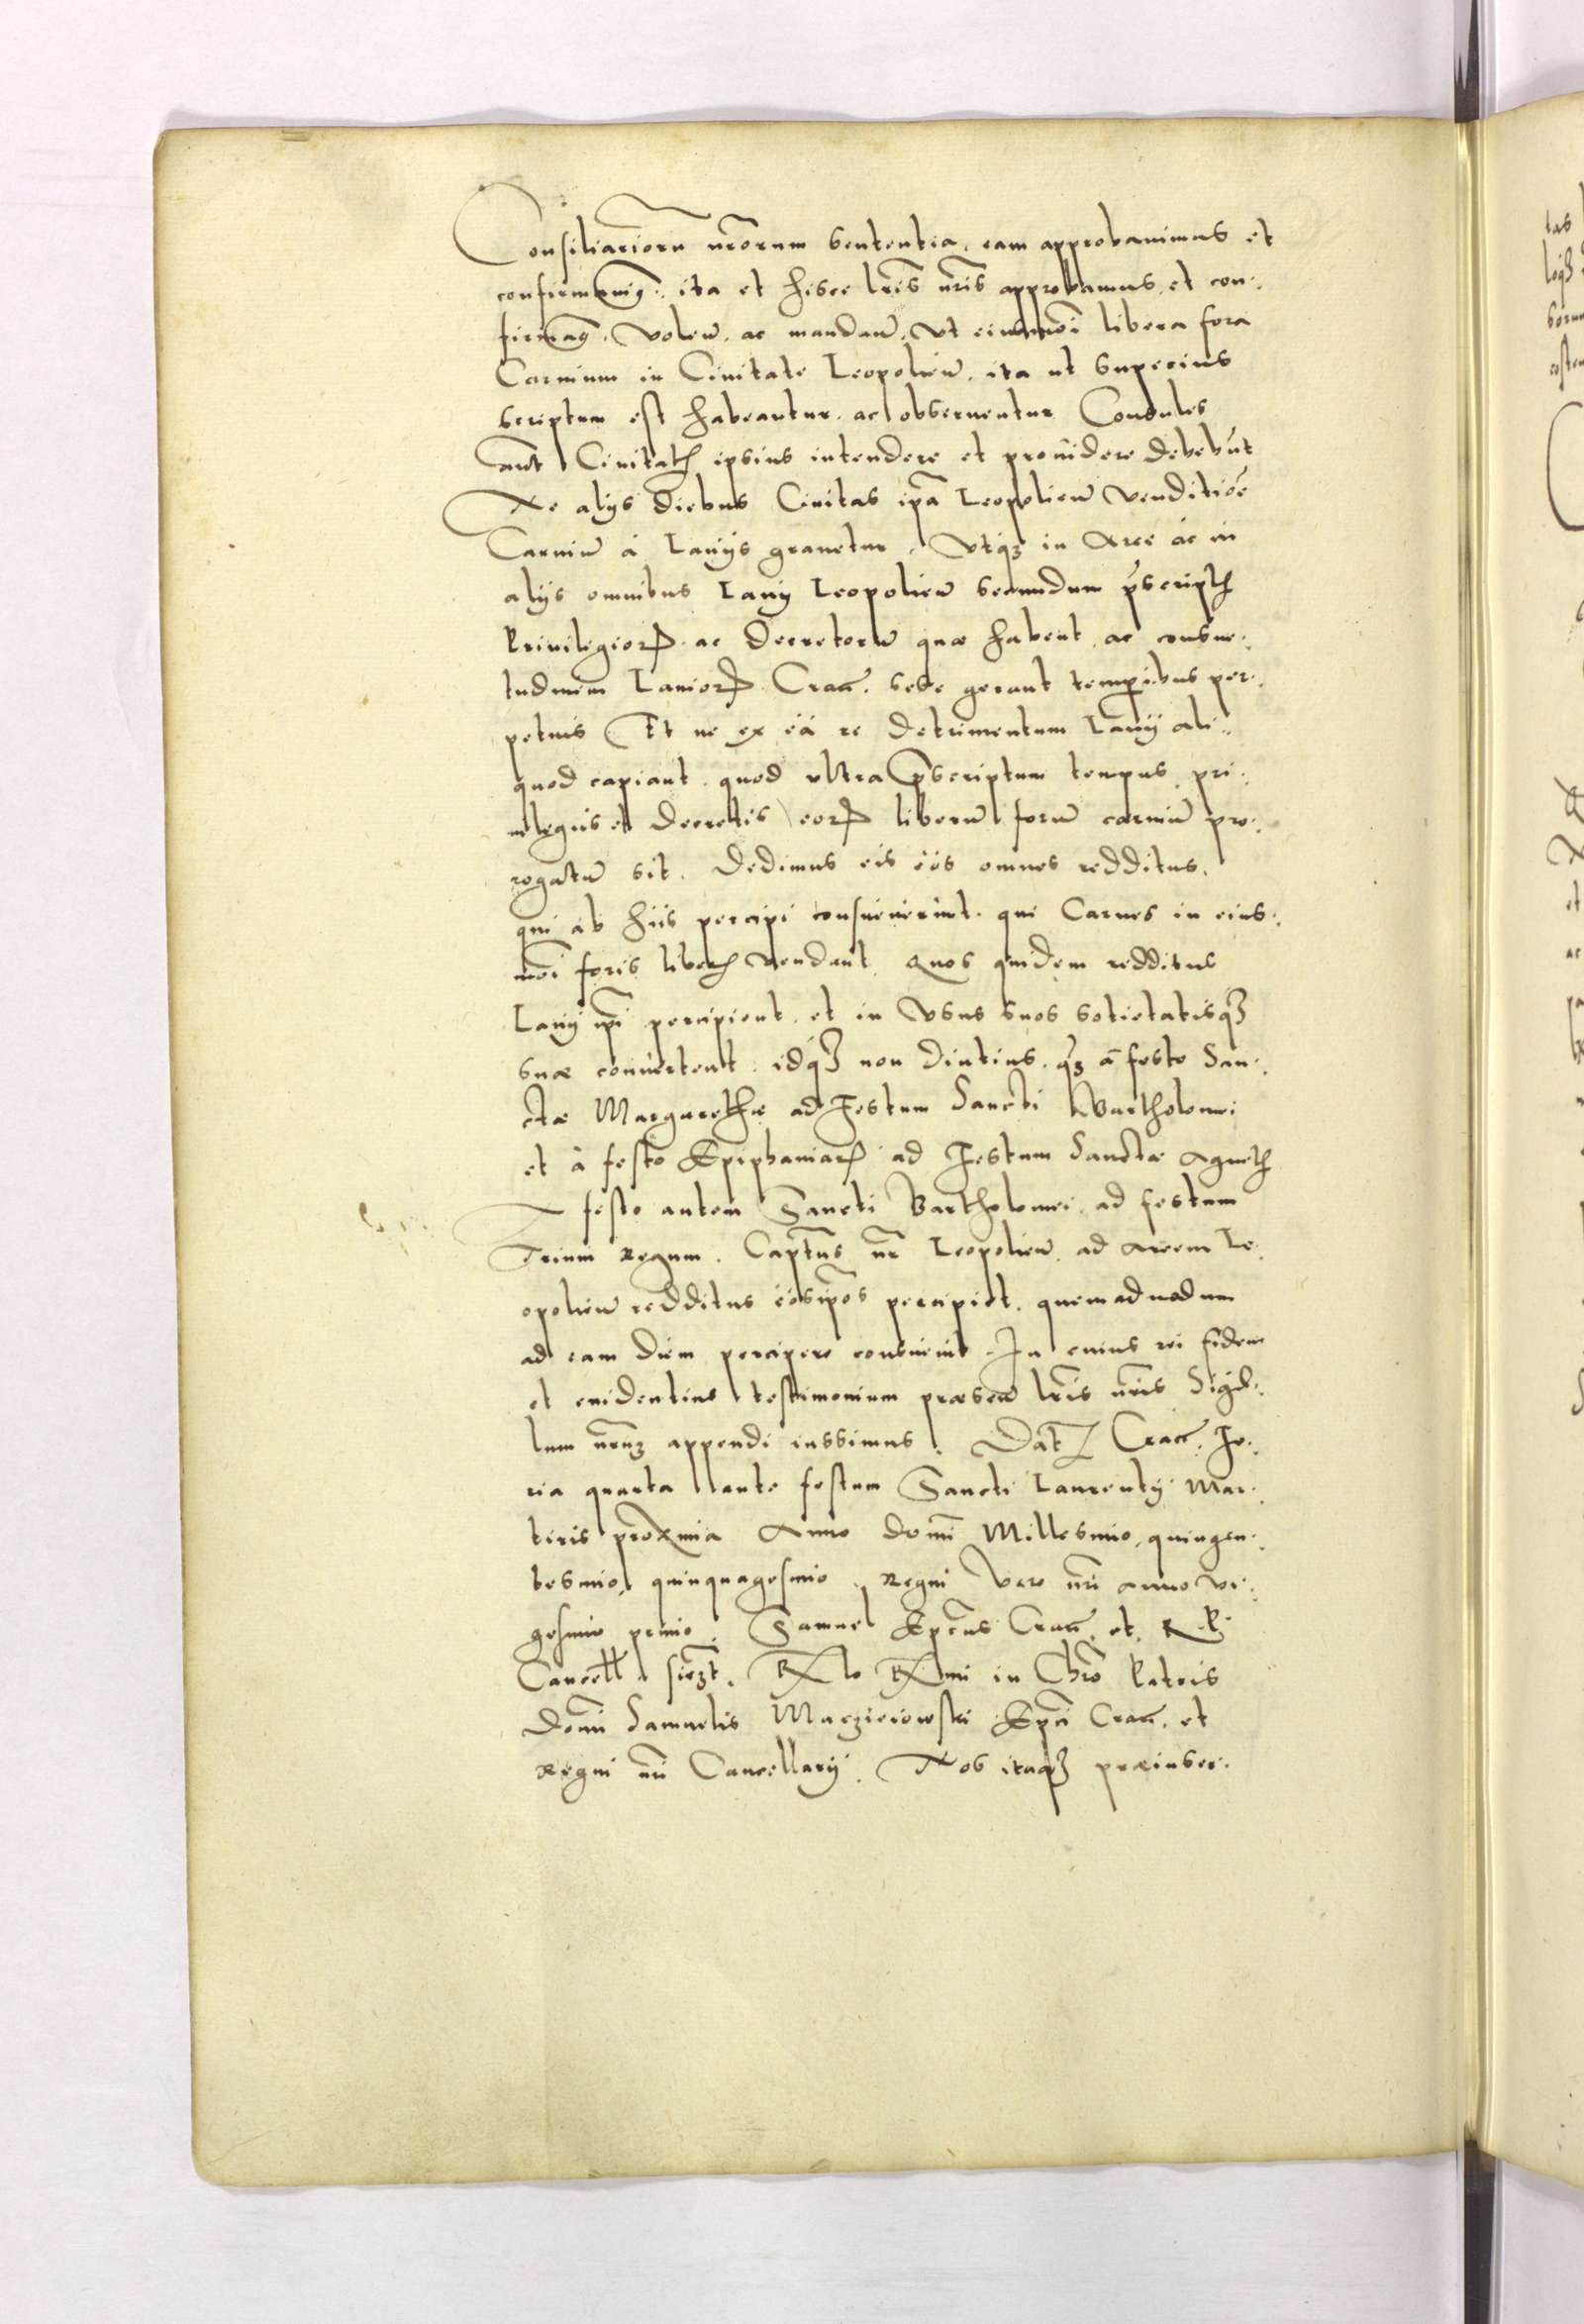 Consiliariorũ nr̃orum sententia, eam approbauimus et
confirmauimꝰ. ita et hisce lr̃is nr̃is approbamus, et con:
firmamꝰ. Volen̄. ac mandan̄. Vt eiusmõi libera fora
Carnium in Ciuitate Leopolien̄. ita ut superius
scriptum est habeantur. ac obseruentur Consules
aũt Ciuitatꝭ ipsius intendere et prouidere debebũt
Ne alijs diebus Ciuitas ip̃a Leopolien̄ Venditiõe
Carniũ à Lanijs grauetur, Vtqꝫ in Arce ac in
alijs omnibus Lanij Leopolien̄ secundum p̃scriptꝭ
Priuilegioꝝ. ac Decretorũ quæ habent, ac consue:
tudinem Lanioꝝ. Crac̄. sese gerant temporibus per:
petuis Et ne ex eâ re detrimentum Lanij ali:
quod capiant. quod vltra p̃scriptum tempus, pri:
uilegiis et Decretis eoꝝ liberũ forũ carniũ pro:
rogatũ sit. Dedimus eis eòs omnes redditus.
qui ab hiis percipi consueuerũt. qui Carnes in eius:
mõi foris liberꝭ vendant. Quos quidem redditus
Lanij ip̃i percipient. et in Vsus suos sotietatisqꝫ
suæ conuertent. idqꝫ non diutius. qꝫ à festo San:
ctæ Margarethæ ad Festum Sancti Bartholomei
et à festo Epiphaniarꝭ ad Festum Sanctæ Agnetꝭ
A festo autem Sancti Bartholomei. ad festum
Trium Regum. Capt̃us nr̃ Leopolien̄. ad arcem Le:
opolien̄ redditus eòs ip̃os percipiet. quemadmodum
ad eam diem percipere consueuit. In cuius rei fidem
et euidentius testimonium præsen̄ lr̃is nr̃is Sigil:
lum nr̃uꝫ appendi iussimus. Dat̃ Crac̄. Fe:
ria quarta ante festum Sancti Laurentij Mar:
tiris proxima Anno domi Millesimo, quingen:
tesimo, quinquagesimo. Regni Vero nr̃i anno vi:
gesimo primo. Samuel Ep̃cus Crac̄. et R. P.
Cancell̃. sſczt. Rl̃o Rm̃i in Chr̃o Patris
Domi Samuelis Macziejowski Ep̃i Crac̄. et
Regni nr̃i Cancellarij. Nos itaqꝫ præinser: